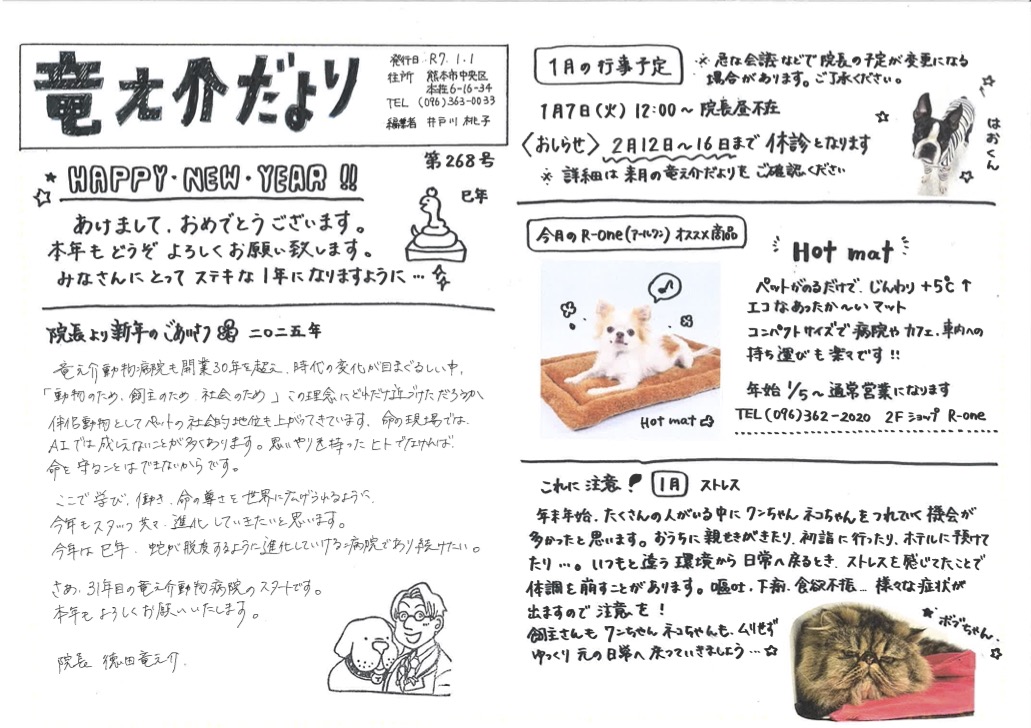 竜之介だより
発行日 R7.1.1
住所 熊本市中央区
本荘6-16-34
TEL (096)363-0033
編集者 井戸川 桃子
第268号
HAPPY・NEW・YEAR!!
巳年
あけまして、おめでとうございます。
本年もどうぞよろしくお願い致します。
みなさんにとって ステキな1年になりますように…
院長より新年のごあいさつ 二〇二五年
竜之介動物病院も開業30年を超え、時代の変化が目まぐるしい中、
「動物のため、飼主のため、社会のため」この理念にどれだけ近づけただろうか。
伴侶動物としてペットの社会的地位も上がってきています。命の現場では、
AIでは成しえないことが多くあります。思いやりを持ったヒトでなければ、
命を守ることはできないからです。
ここで学び、働き、命の尊さを世界に広げられるように、
今年もスタッフ共々、進化していきたいと思います。
今年は巳年、蛇が脱皮するように進化していける病院であり続けたい。
さぁ、31年目の竜之介動物病院のスタートです。
本年もよろしくお願いいたします。
院長 徳田竜之介
1月の行事予定
※急な会議などで院長の予定が変更になる
場合があります。ご了承ください。
1月7日(火) 12:00〜 院長昼不在
〈おしらせ〉 2月12日〜16日まで 休診となります
※詳細は来月の竜之介だよりをご確認ください
はおくん
今月のR-One(アールワン) オススメ商品
Hot mat
ペットがのるだけで、じんわり+5℃↑
エコなあったか〜いマット
コンパクトサイズで病院やカフェ、車内への
持ち運びも楽々です!!
年始 1/5〜 通常営業になります
TEL(096)362-2020 2Fショップ R-one
Hot mat
これに注意! 1月 ストレス
年末年始、たくさんの人がいる中にワンちゃん ネコちゃんをつれていく機会が
多かったと思います。おうちに親せきがきたり、初詣に行ったり、ホテルに預けて
たり…。いつもと違う環境から日常へ戻るとき、ストレスを感じてたことで
体調を崩すことがあります。嘔吐、下痢、食欲不振… 様々な症状が
出ますので注意を!
飼主さんもワンちゃんネコちゃんも、ムリせず
ゆっくり元の日常へ戻っていきましょう…☆
ボブちゃん